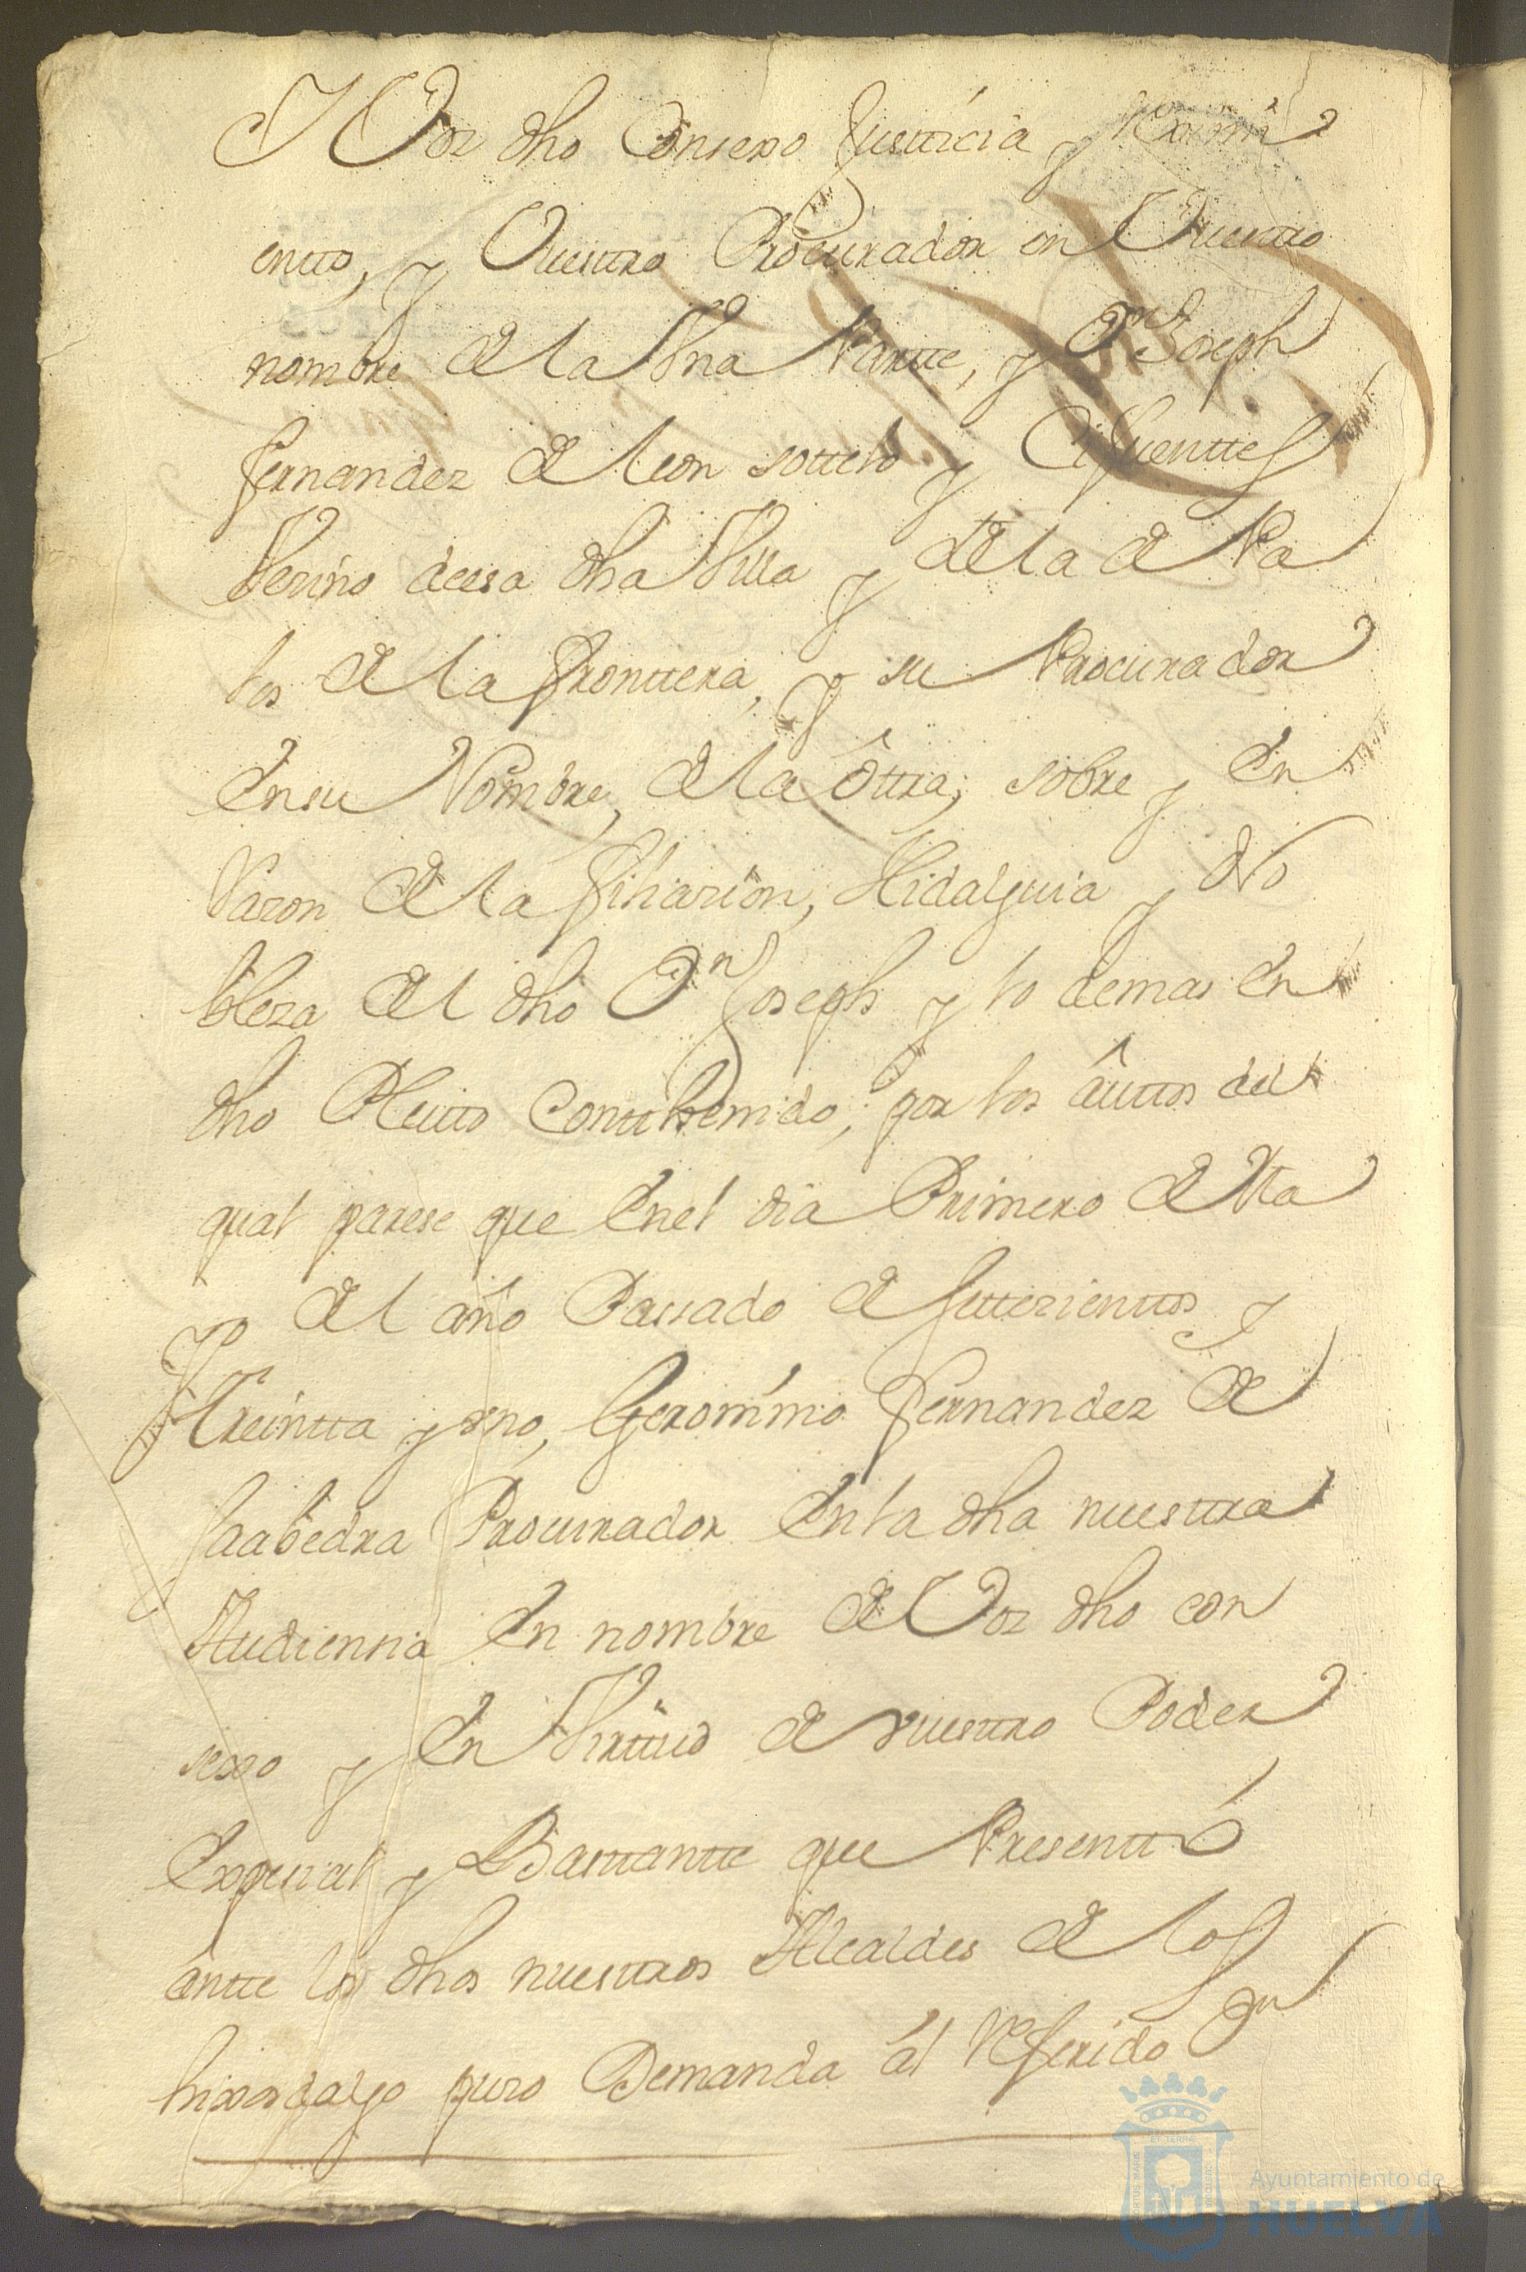 Y Voz dho Consexo Justticia y Reximi
entto, y Vuesttro Procurador en Vuesttro
nombre de la Vna Partte, y Dn Joseph
fernandez de leon sottelo y Cifuenttes
Vezino deesa dha Villa y de la de Pa
los de la fronttera, y su Procurador
En su Nombre, de la ôttra, sobre y En
Razon de la filiazion, Hidalguia y No
bleza del dho Dn Joseph y lo demas En
dho Pleitto Contthenido, por los âuttos del
qual parese que En el dia Primero de Ma
yo del año Passado de settezienttos y
Treintta y vno, Geronimo Fernandez de
saabedra Procurador En la dha nuesttra
Audiensia En nombre de Voz dho con
sexo y En Virttud de vuesttro Poder
Expesial y Basttantte que Presenttó
ântte los dhos nuesttros Alcaldes de los
hixosdalgo puso Demanda ál Referido Dn
Ayuntamiento de
HUELVA